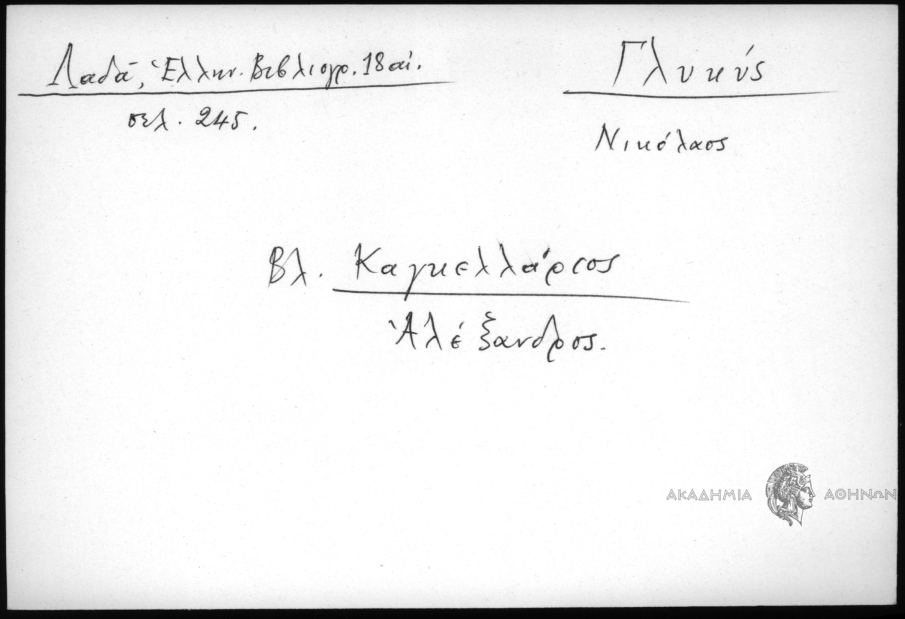 Λαδᾶ, Ἑλλην. Βιβλιογρ. 18 αἰ.
σελ. 245.
Γλυκύς
Νικόλαος
Βλ. Καγκελλάριος
Ἀλέξανδρος.
ΑΚΑΔΗΜΙΑ ΑΘΗΝΩΝ